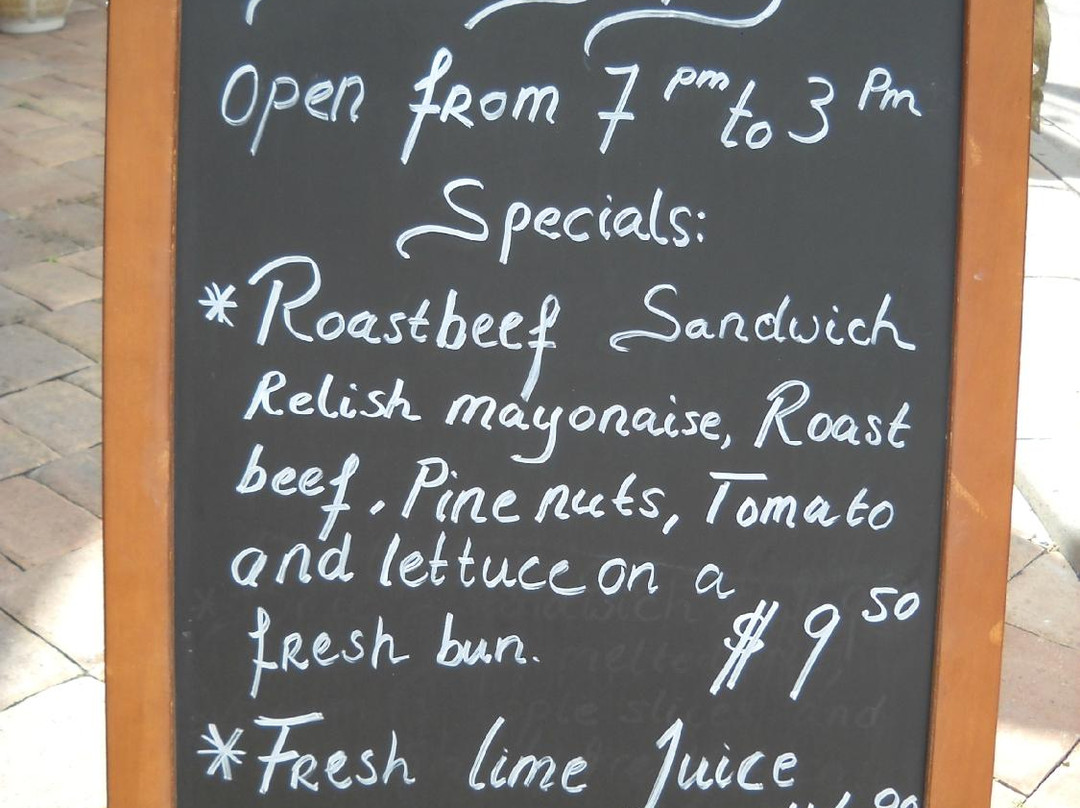 Open from 7 pm to 3 Pm
Specials:
* Roastbeef Sandwich
Relish mayonaise, Roast
beef, Pine nuts, Tomato
and lettuce on a
fresh bun. $ 9 50
* Fresh lime Juice